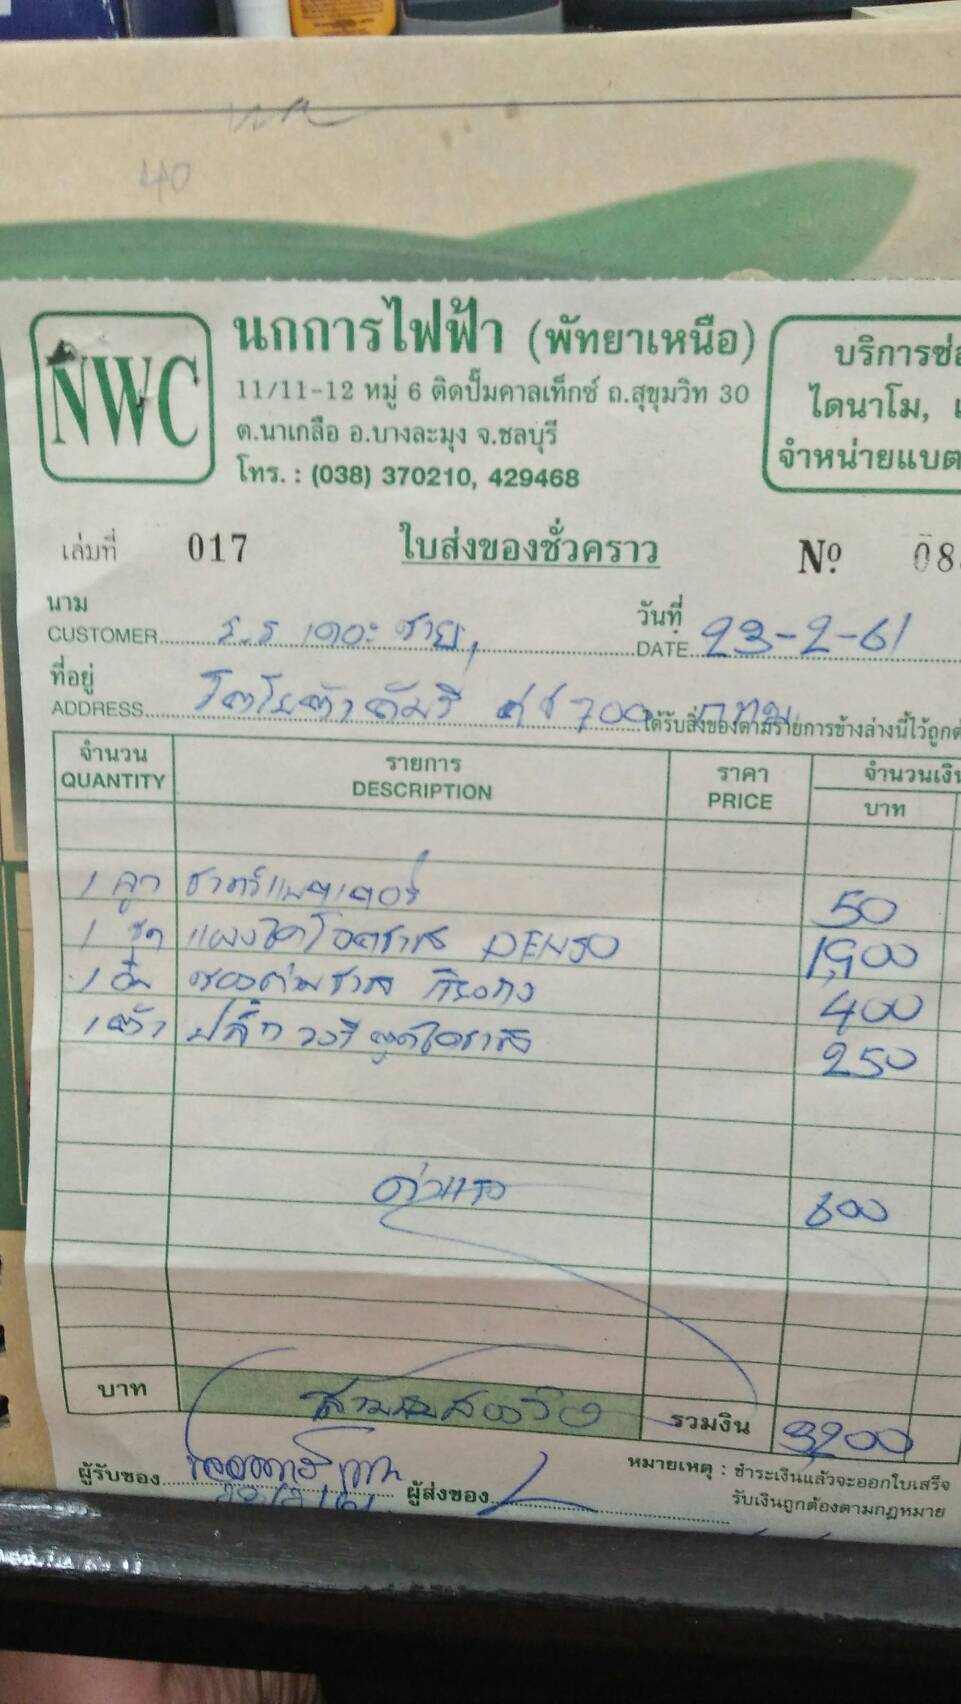 40
NWC
นกการไฟฟ้า (พัทยาเหนือ)
11/11-12 หมู่ 6 ติดปั๊มคาลเท็กซ์ ถ.สุขุมวิท 30
ต.นาเกลือ อ.บางละมุง จ.ชลบุรี
โทร. : (038) 370210, 429468
บริการซ่อ
ไดนาโม,
จำหน่ายแบต
เล่มที่ 017 ใบส่งของชั่วคราว Nº 08
นาม
CUSTOMER ร.ร เดอะ ซาย
วันที่
DATE 23-2-61
ที่อยู่
ADDRESS โตโยต้า คัมรี่ 700 กทม
ได้รับสิ่งของตามรายการข้างล่างนี้ไว้ถูกต้
จำนวน รายการ ราคา จำนวนเงิน
QUANTITY DESCRIPTION PRICE บาท
1 ลูก ชาทร์แบตเตอรี่ 50
1 ชุด แผงไดโอดชาร์ต DENSO 1,900
1 อัน 400
1 ตัว ปลั๊ก 250
ค่าแรง 600
บาท สามพันสองร้อย รวมเงิน 3200
ผู้รับของ ผู้ส่งของ
หมายเหตุ : ชำระเงินแล้วจะออกใบเสร็จ
รับเงินถูกต้องตามกฎหมาย